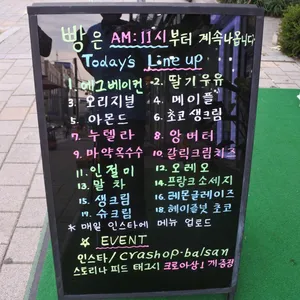 빵은 AM:11시부터 계속나옵니다
Today's Line up
1. 에그베이컨 2. 딸기우유
3. 오리지널 4. 메이플
5. 아몬드 6. 초코생크림
7. 누텔라 8. 앙버터
9. 마약옥수수 10. 갈릭크림치즈
11. 인절미 12. 오레오
13. 말차 14. 프랑크소세지
15. 생크림 16. 레몬글레이즈
17. 슈크림 18. 헤이즐넛초코
* 매일 인스타에 메뉴 업로드
☆ EVENT
인스타/crashop-balsan
스토리나 피드 태그시 크로아상 1개 증정